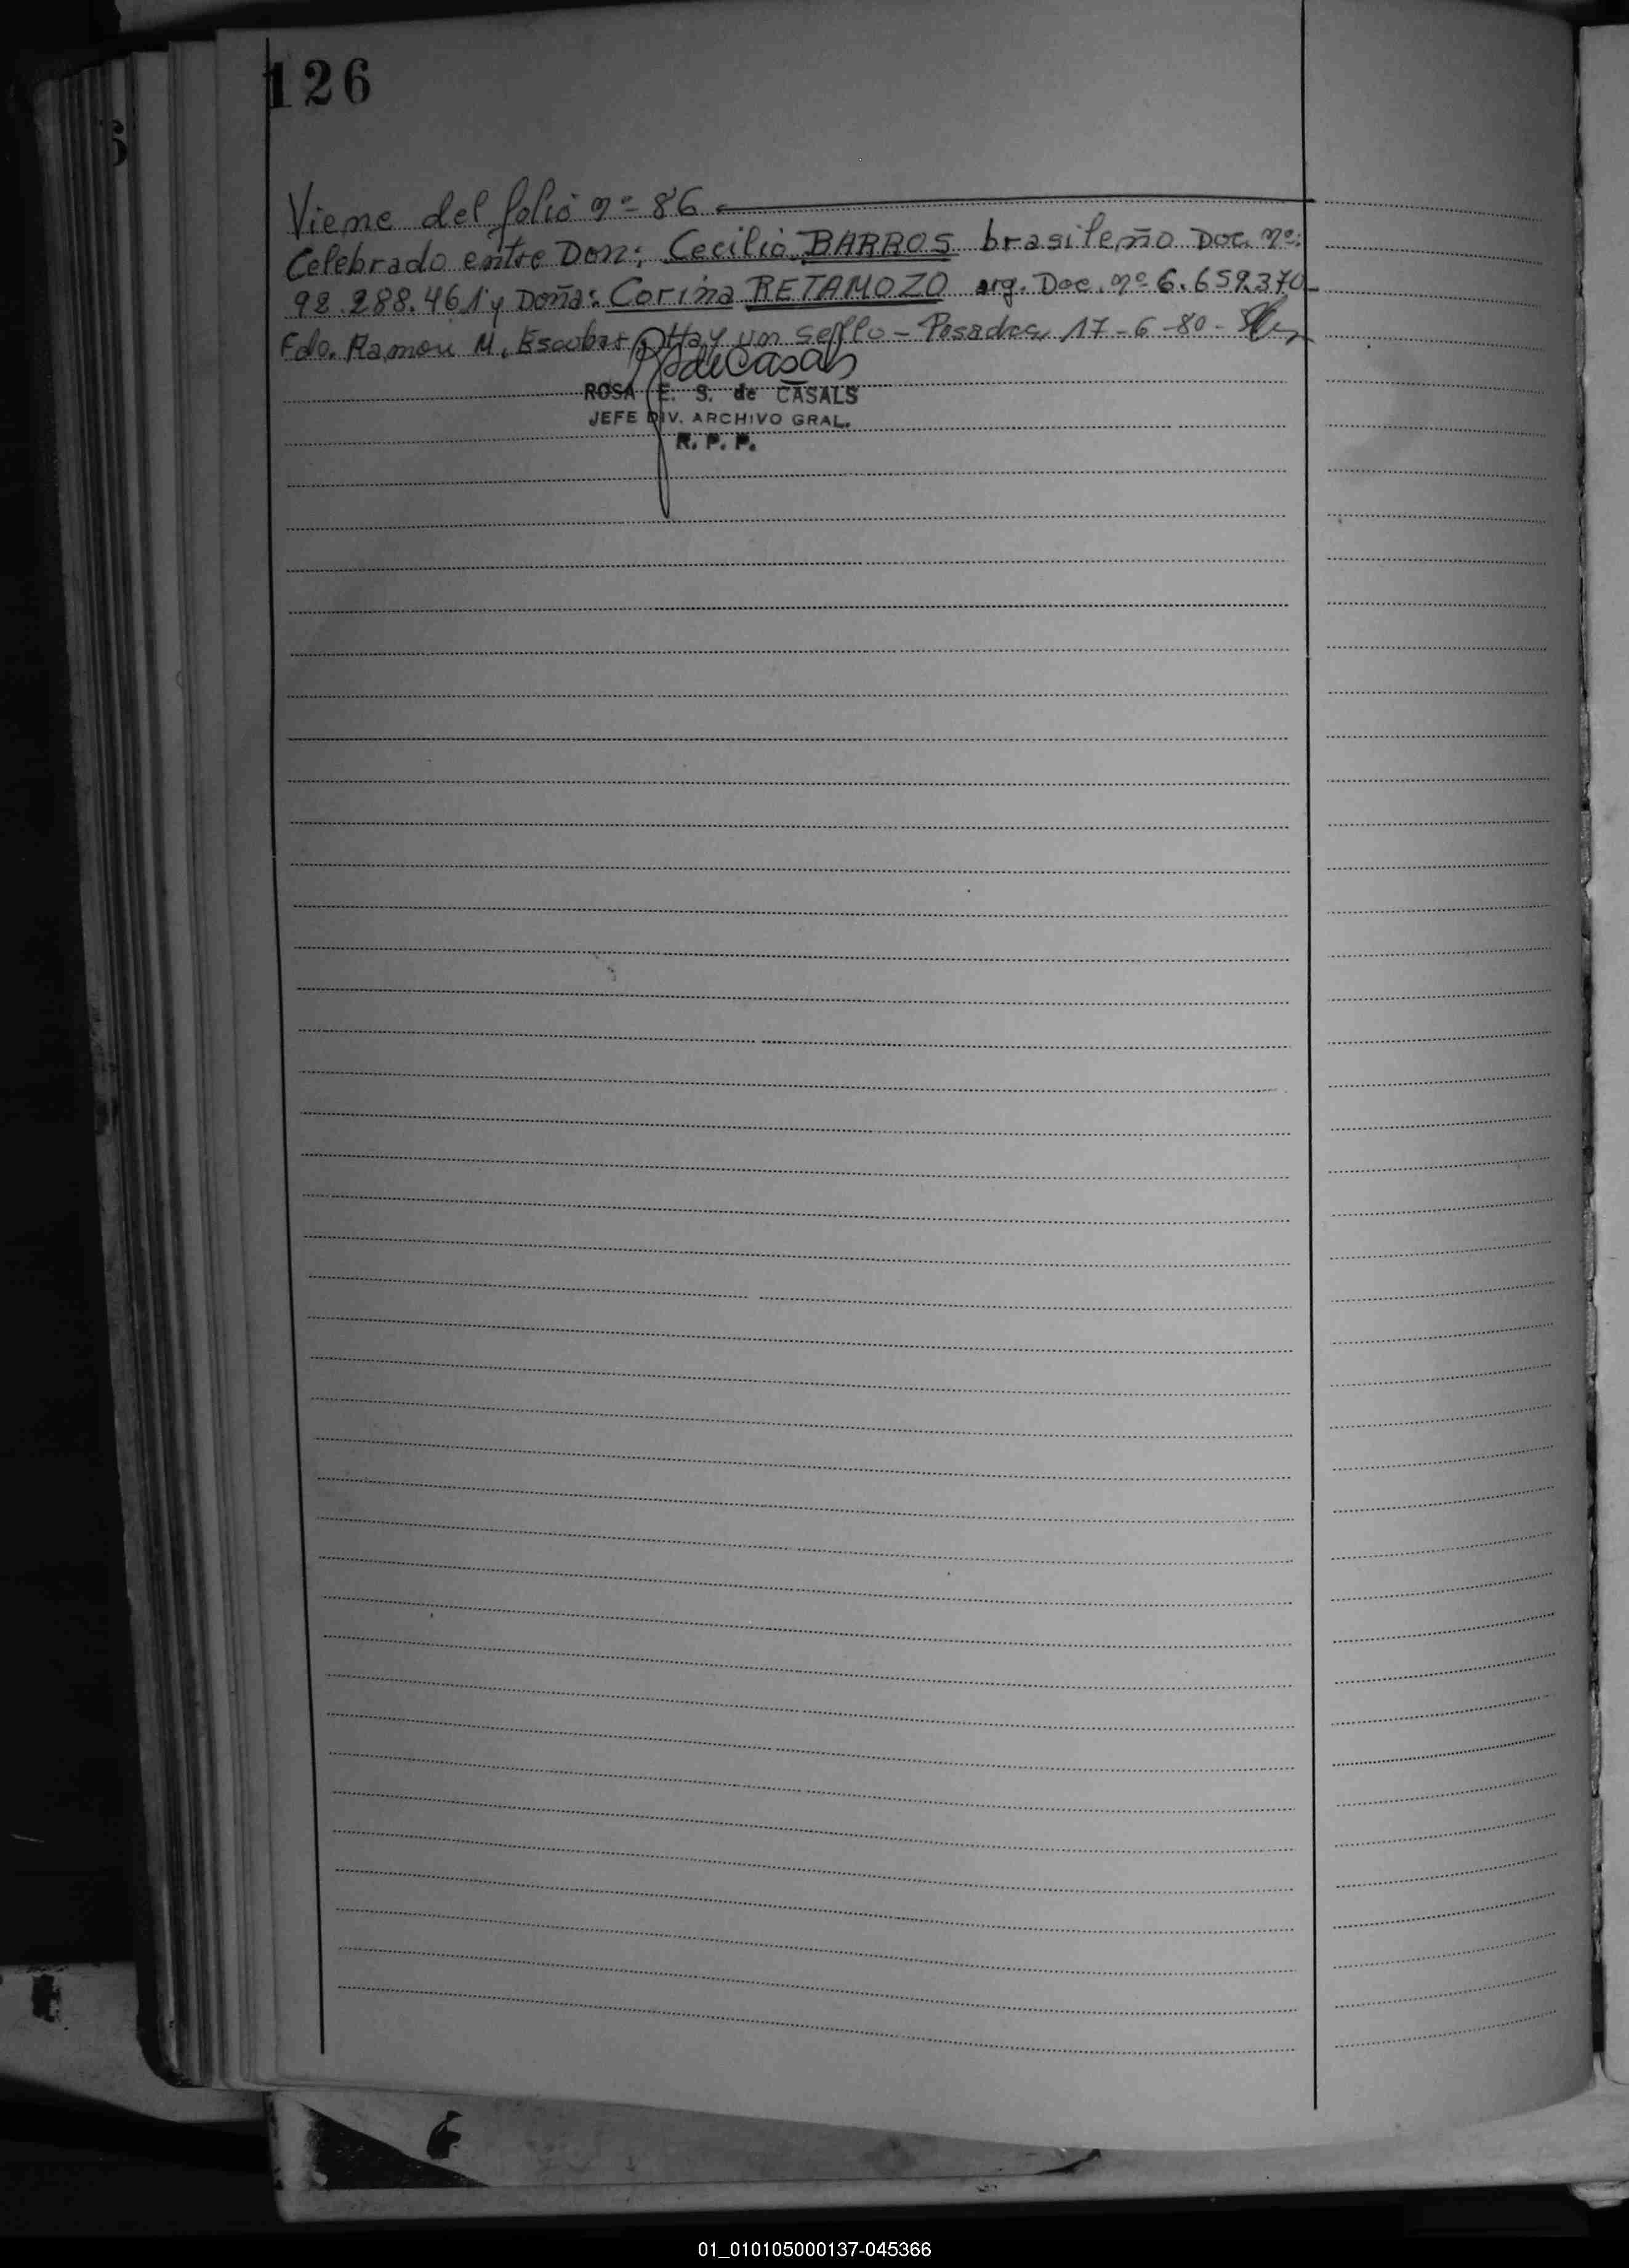 126
Viene del folio nº 86
Celebrado entre Don: Cecilio BARROS brasileño Doc. nº:
92.288.461 y Doña: Corina RETAMOZO arg. Doc. nº 6.659.370_
Fdo. Ramón M. Escobar Hay un sello - Posadas, 17-6-80-
de Casals
ROSA E. S. de CASALS
JEFE DIV. ARCHIVO GRAL.
R. P. P.
6
01_010105000137-045366